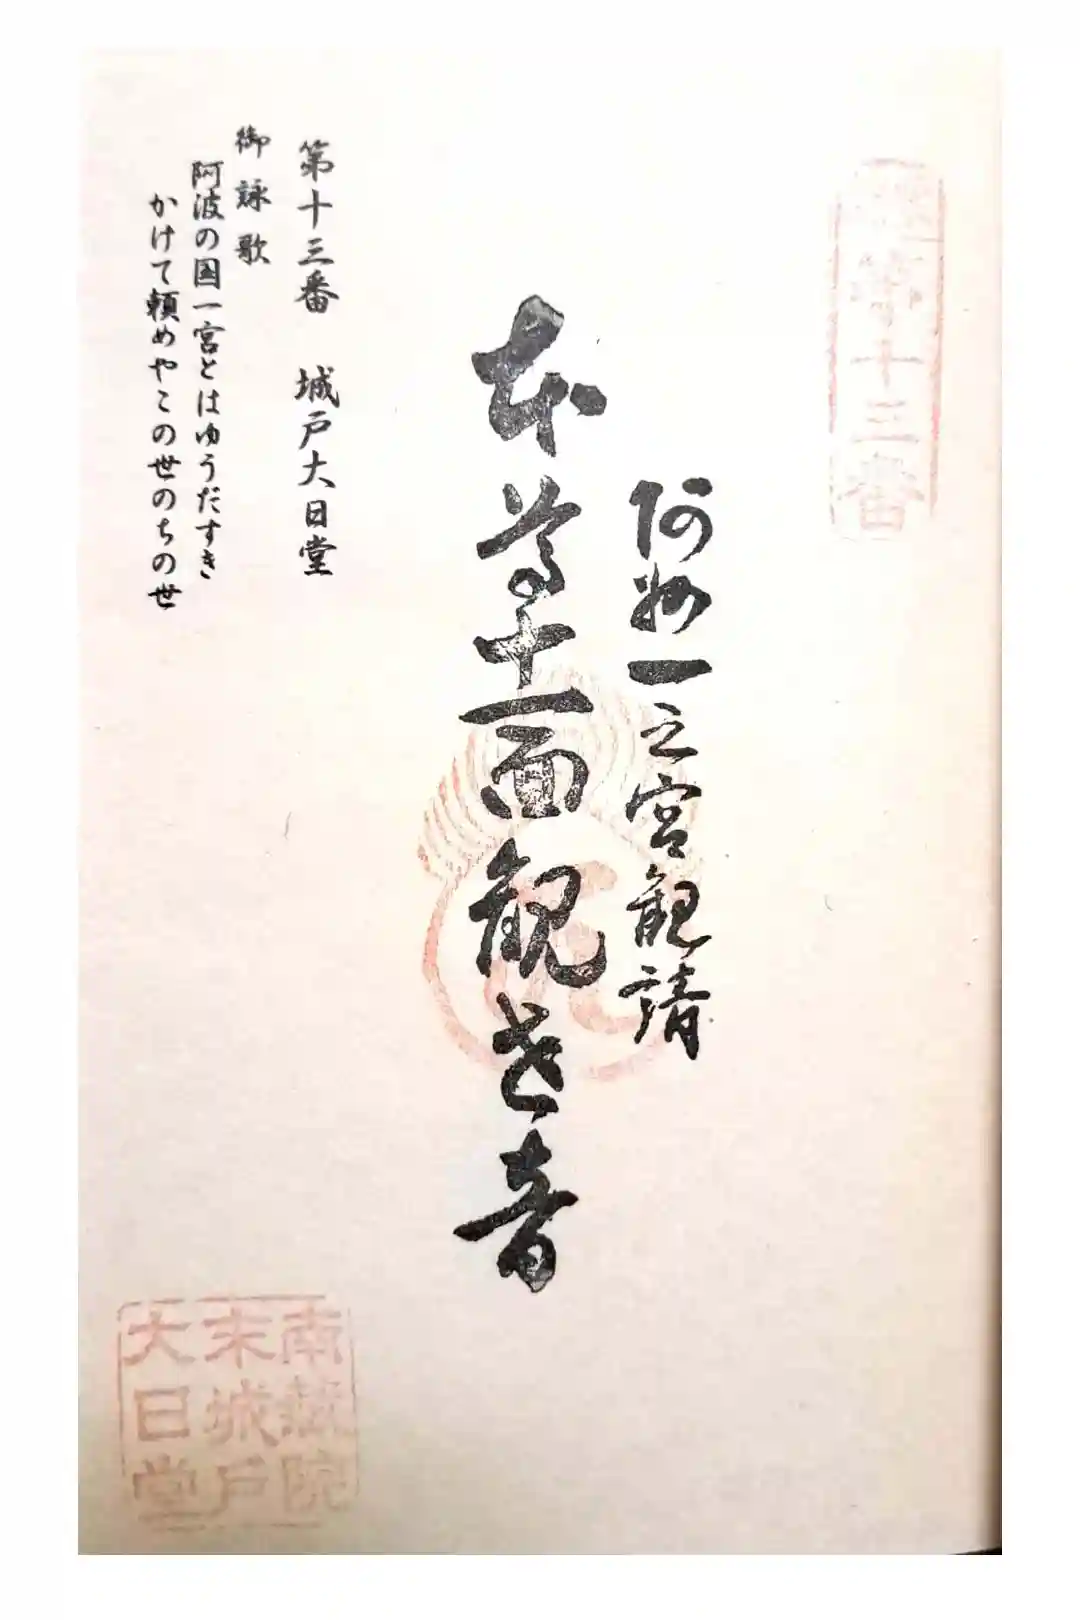 第十三番
阿州一之宮観請
本尊十一面観世音
第十三番　城戸大日堂
御詠歌
阿波の国一宮とはゆうだすき
かけて頼めやこの世のちの世
末城戸
大日堂